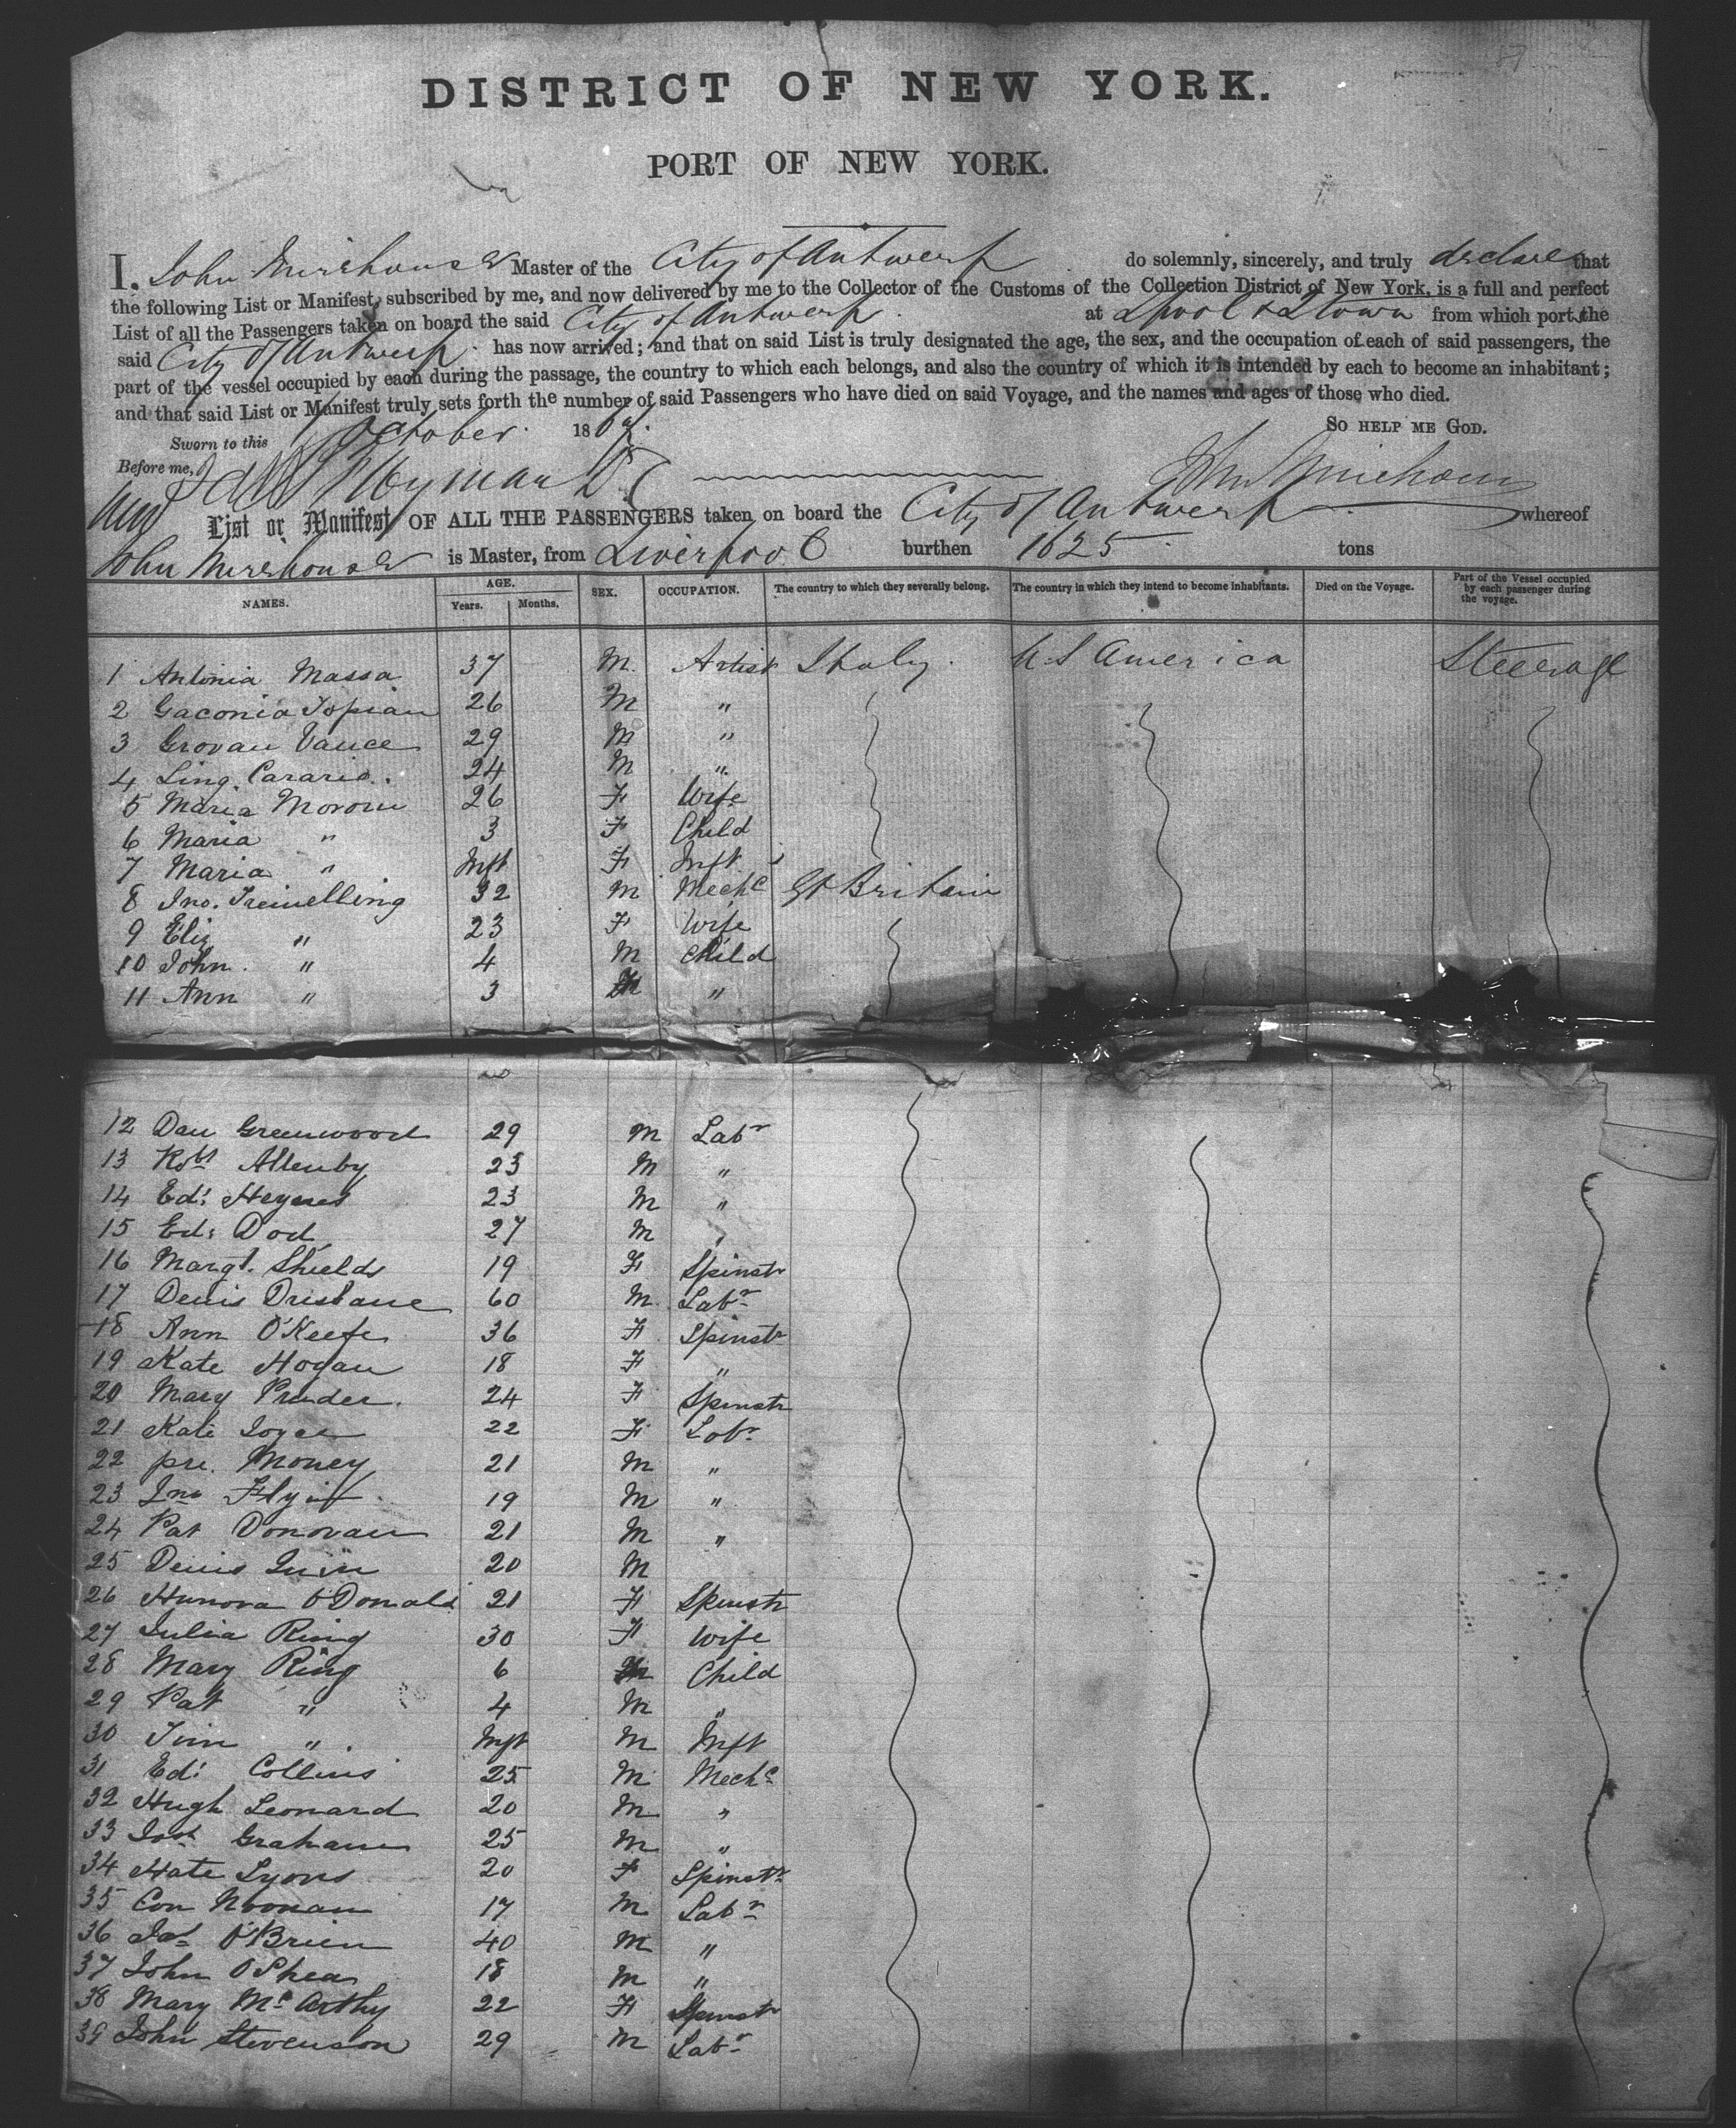 DISTRICT OF NEW YORK.
PORT OF NEW YORK.
I, John Mirehouse Master of the City of Antwerp do solemnly, sincerely, and truly declare that
the following List or Manifest, subscribed by me, and now delivered by me to the Collector of the Customs of the Collection District of New York, is a full and perfect
List of all the Passengers taken on board the said City of Antwerp at Lpool & Qtown from which port the
said City of Antwerp has now arrived; and that on said List is truly designated the age, the sex, and the occupation of each of said passengers, the
part of the vessel occupied by each during the passage, the country to which each belongs, and also the country of which it is intended by each to become an inhabitant;
and that said List or Manifest truly sets forth the number of said Passengers who have died on said Voyage, and the names and ages of those who died.
Sworn to this October 186 SO HELP ME GOD.
Before me, Jno Mirehouse
List or Manifest OF ALL THE PASSENGERS taken on board the City of Antwerp whereof
John Mirehouse is Master, from Liverpool burthen 1625 tons
NAMES. AGE. Years. Months. SEX. OCCUPATION. The country to which they severally belong. The country in which they intend to become inhabitants. Died on the Voyage. Part of the Vessel occupied by each passenger during the voyage.
1 Antonia Massa 37 M. Artist Italy. U.S America Steerage
2 Gaconia Topian 26 M "
3 Grovan Vance 29 M "
4 Ling. Cararia. 24 M "
5 Maria Moroni 26 F Wife
6 Maria " 3 F Child
7 Maria " Inft F Inft
8 Jno. Trewelling 32 M Mechc Gt Britain
9 Eliz " 23 F Wife
10 John. " 4 M Child
11 Ann " 3 "
12 Dan Greenwood 29 M Labr
13 Robt Allenby 23 M "
14 Ed: Heynes 23 M "
15 Ed: Dod 27 M "
16 Margt. Shields 19 F Spinstr
17 Denis Drisbane 60 M Labr
18 Ann O'Keefe 36 F Spinstr
19 Kate Hogan 18 F "
20 Mary Pruder. 24 F Spinstr
21 Kate Joyce 22 F Labr
22 pre. Money 21 M "
23 Jno Flynn 19 M "
24 Pat Donovan 21 M "
25 Denis Quin 20 M
26 Hunora O'Donald 21 F Spinstr
27 Julia Ring 30 F Wife
28 Mary Ring 6 Child
29 Pat " 4 M "
30 Tim " Inft M Inft
31 Ed: Collins 25 M Mechc
32 Hugh Leonard 20 M "
33 Josh Graham 25 M "
34 Kate Lyons 20 F Spinstr
35 Con Noonan 17 M Labr
36 Jas O'Brien 40 M "
37 John O'Shea 18 M "
38 Mary McArthy 22 F Spinstr
39 John Stevenson 29 M Labr